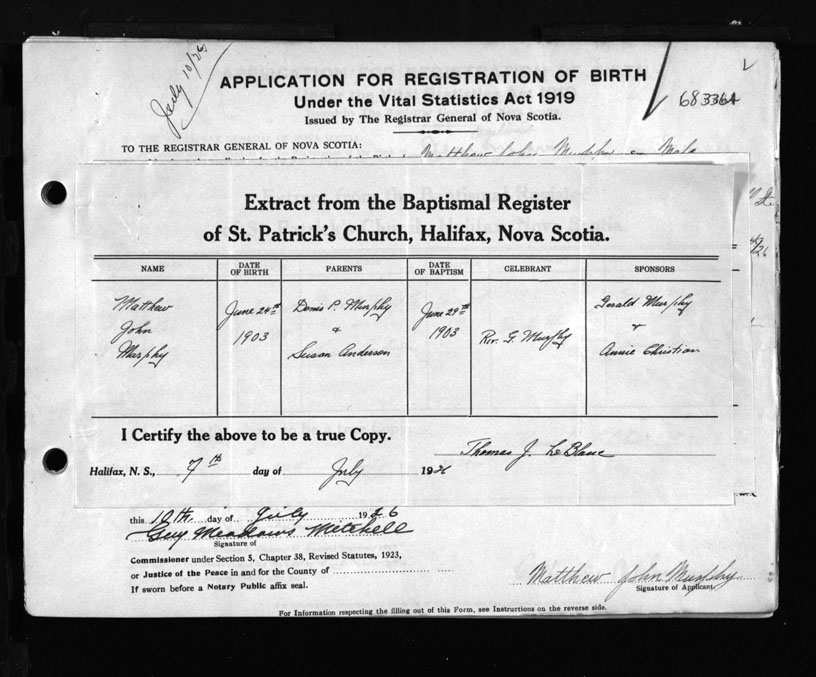 July 10/26
APPLICATION FOR REGISTRATION OF BIRTH
Under the Vital Statistics Act 1919
Issued by The Registrar General of Nova Scotia.
TO THE REGISTRAR GENERAL OF NOVA SCOTIA:
Matthew John Murphy
Extract from the Baptismal Register
of St. Patrick's Church, Halifax, Nova Scotia.
NAME DATE OF BIRTH PARENTS DATE OF BAPTISM CELEBRANT SPONSORS
Matthew June 24th Denis P. Murphy June 29th Gerald Murphy
John 1903 & 1903 Rev. G. Murphy +
Murphy Susan Anderson Annie Christian
I Certify the above to be a true Copy.
Thomas J. LeBlanc
Halifax, N. S., 7th day of July 1926
this 10th. day of July 1926
Guy Meadows Mitchell
Signature of
Commissioner under Section 5, Chapter 38, Revised Statutes, 1923,
or Justice of the Peace in and for the County of
If sworn before a Notary Public affix seal.
Matthew John Murphy
Signature of Applicant.
For Information respecting the filling out of this Form, see Instructions on the reverse side.